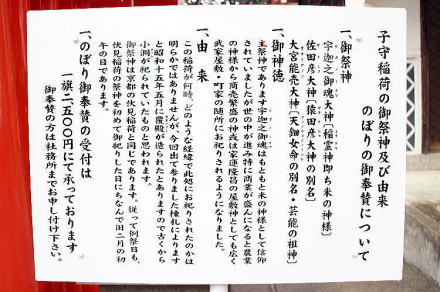 子守稲荷の御祭神及び由来
のぼりの御奉賛について
一、御祭神
宇迦之御魂大神〔稲霊神即ち米の神様〕
佐田彦大神〔猿田彦大神の別名〕
大宮能売大神〔天鈿女命の別名・芸能の祖神〕
一、御神徳
主祭神であります宇迦之御魂はもともと米の神様として信仰
されていましたが世の中の進み特に商業が盛んになると農業
の神様から商売繁盛の神或は家運隆昌の屋敷神としても広く
武家屋敷・町家の随所にお祀りされるようになりました。
一、由 来
この稲荷が何時、どのような経緯で此処にお祀りされたのかは
明らかではありませんが、今回出て参りました棟札によります
と昭和十五年五月に覆殿が造られたとありますので古くから
小洞が祀られていたものと思われます。
御祭神は京都の伏見稲荷と同じであります。従って例祭日も、
伏見稲荷の祭神を初めて御祀りした日にちなんで旧二月の初
午の日であります。
一、のぼり御奉賛の受付は
一旗二五〇〇円にて承っております
御奉賛の方は社務所までお申し付け下さい。